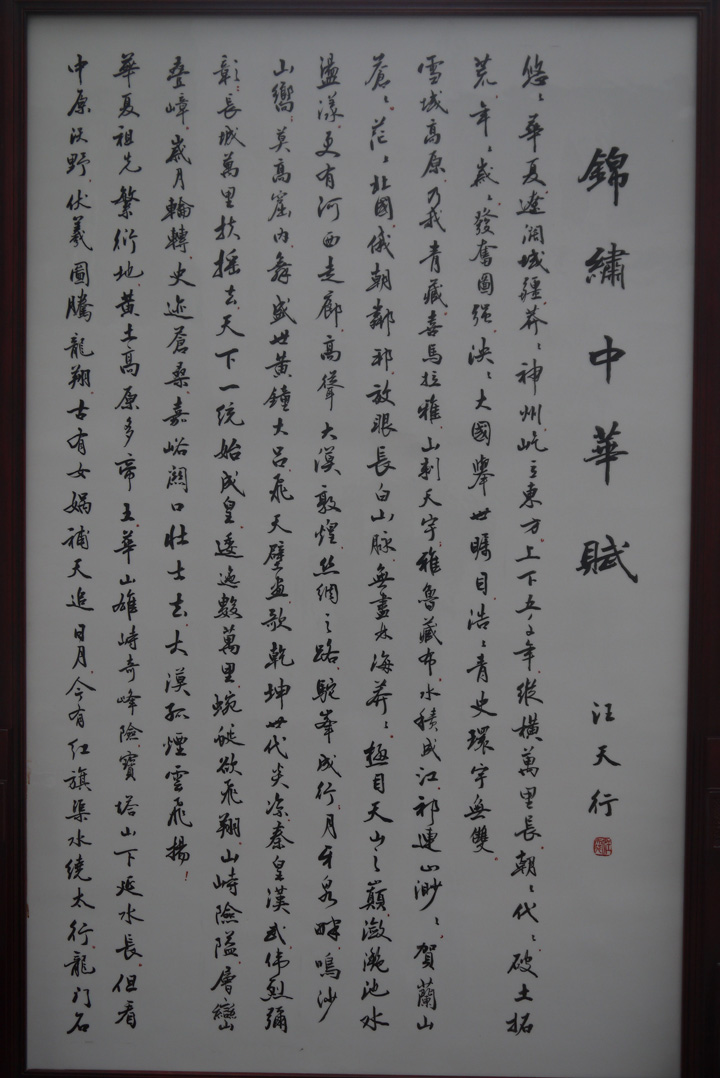 錦繡中華賦
汪天行
悠、華夏遼濶域疆莽、神州屹立東方上下五千年縱橫萬里長朝、代、破土拓
荒年、歲、發奮圖强泱、大國舉世矚目浩、青史環宇無雙
雪域高原乃我青藏喜馬拉雅山刺天宇雅魯藏布水積成江祁連山渺、賀蘭山
蒼、茫、北國俄朝鄰邦放眼長白山脉無盡林海莽、極目天山之巔瀲灔池水
盪漾更有河西走廊高聳大漠敦煌絲綢之路駝峯成行月牙泉畔鳴沙
山嚮莫高窟内舞盛世黄鐘大吕飛天壁畫歌乾坤世代炎凉秦皇漢武偉烈彌
彰長城萬里扶摇去天下一统始成皇逶迤數萬里蜿蜒欲飛翔山峙險隘層巒
叠嶂歲月輪轉史迹蒼桑嘉峪關口壯士去大漠孤煙雲飛揚！
華夏祖先繁衍地黄土高原多帝王華山雄峙奇峰險寶塔山下延水長但看
中原沃野伏羲圖騰龍翔古有女媧補天追日月今有红旗渠水繞太行龍门石